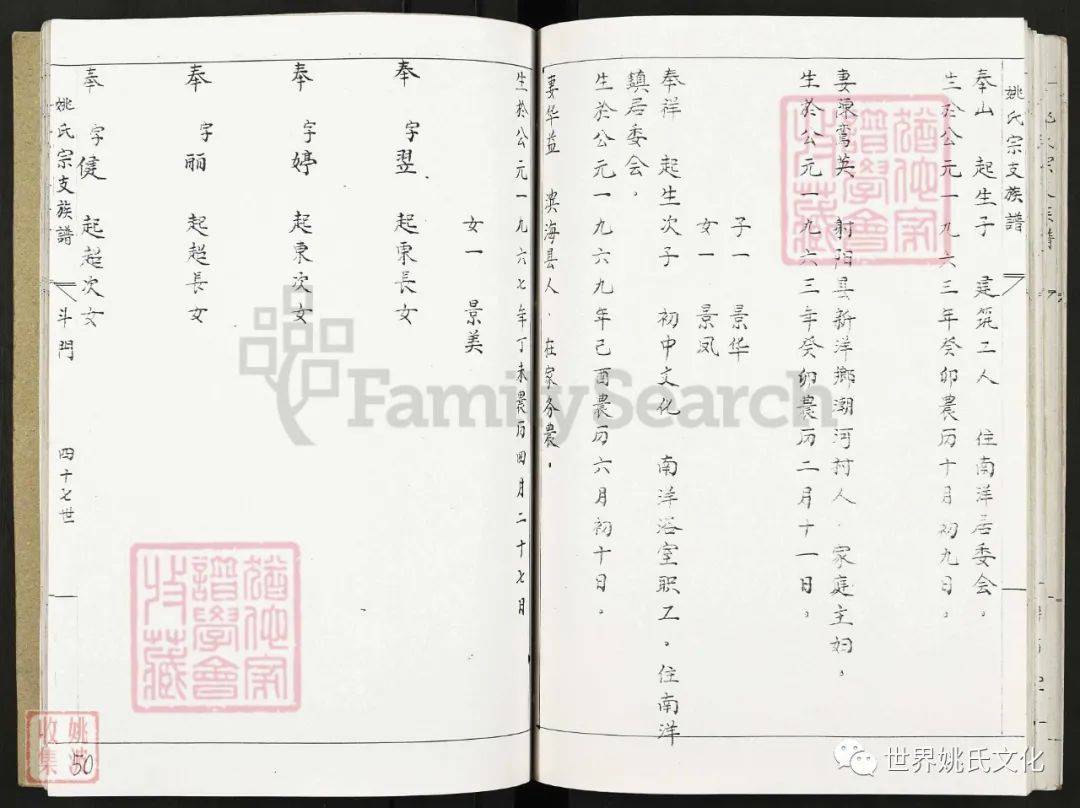 姚氏宗支族譜
奉山 起生子 建筑工人 住南洋居委会。
生於公元一九六三年癸卯農历十月初九日。
妻陳鸾英 射阳县新洋鄉潮河村人．家庭主妇。
生於公元一九六三年癸卯農历二月十一日。
子一 景华
女一 景凤
奉祥 起生次子 初中文化 南洋浴室职工。住南洋
鎮居委会。
生於公元一九六九年己酉農历六月初十日。
妻华益 滨海县人．在家务農。
生於公元一九六七年丁未農历四月二十七日
女一 景美
奉 字翌 起東長女
奉 字婷 起東次女
奉 字丽 起超長女
奉 字健 起超次女
姚氏宗支族譜 斗門 四十七世
50
姚 收集
猶他家譜學會收藏
猶他家譜學會收藏
FamilySearch
世界姚氏文化